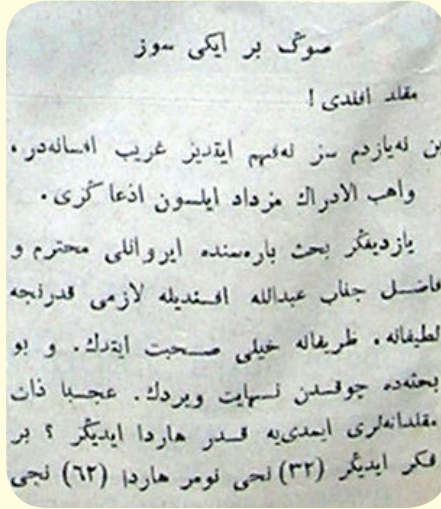 صوڭ بر ایكی سوز
مقلد افندی !
بن نه‌یازدم سز نه‌فهم ایتدیز غریب افسانه‌در،
واهب الادراك مزداد ایلسون اذعا ڭزی.
یازدیفڭر بحث باره‌سنده ایروانلی محترم و
فاضل جناب عبدالله افندیله لازمی قدرنجه
لطیفانه، ظریفانه خیلی صحبت ایتدك. و بو
بحثه‌ده چوقدن نهایت ویردك. عجبا ذات
مقلدانه‌لری ایمدی‌یه قدر هاردا ایدیڭر ؟ بر
فكر ایدیڭر (٣٢) نجی نومر هاردا (٦٢) نجی